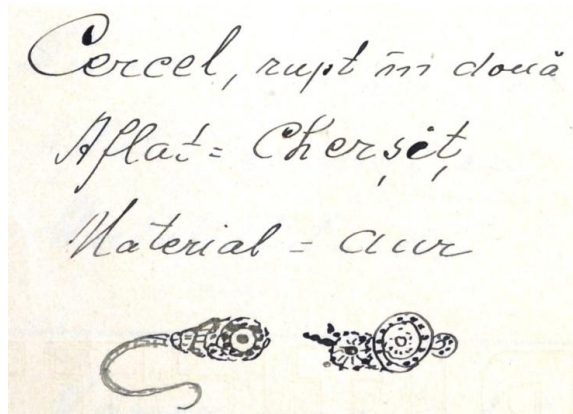 Cercel, rupt în două
Aflat = Cherșiț
Material = aur